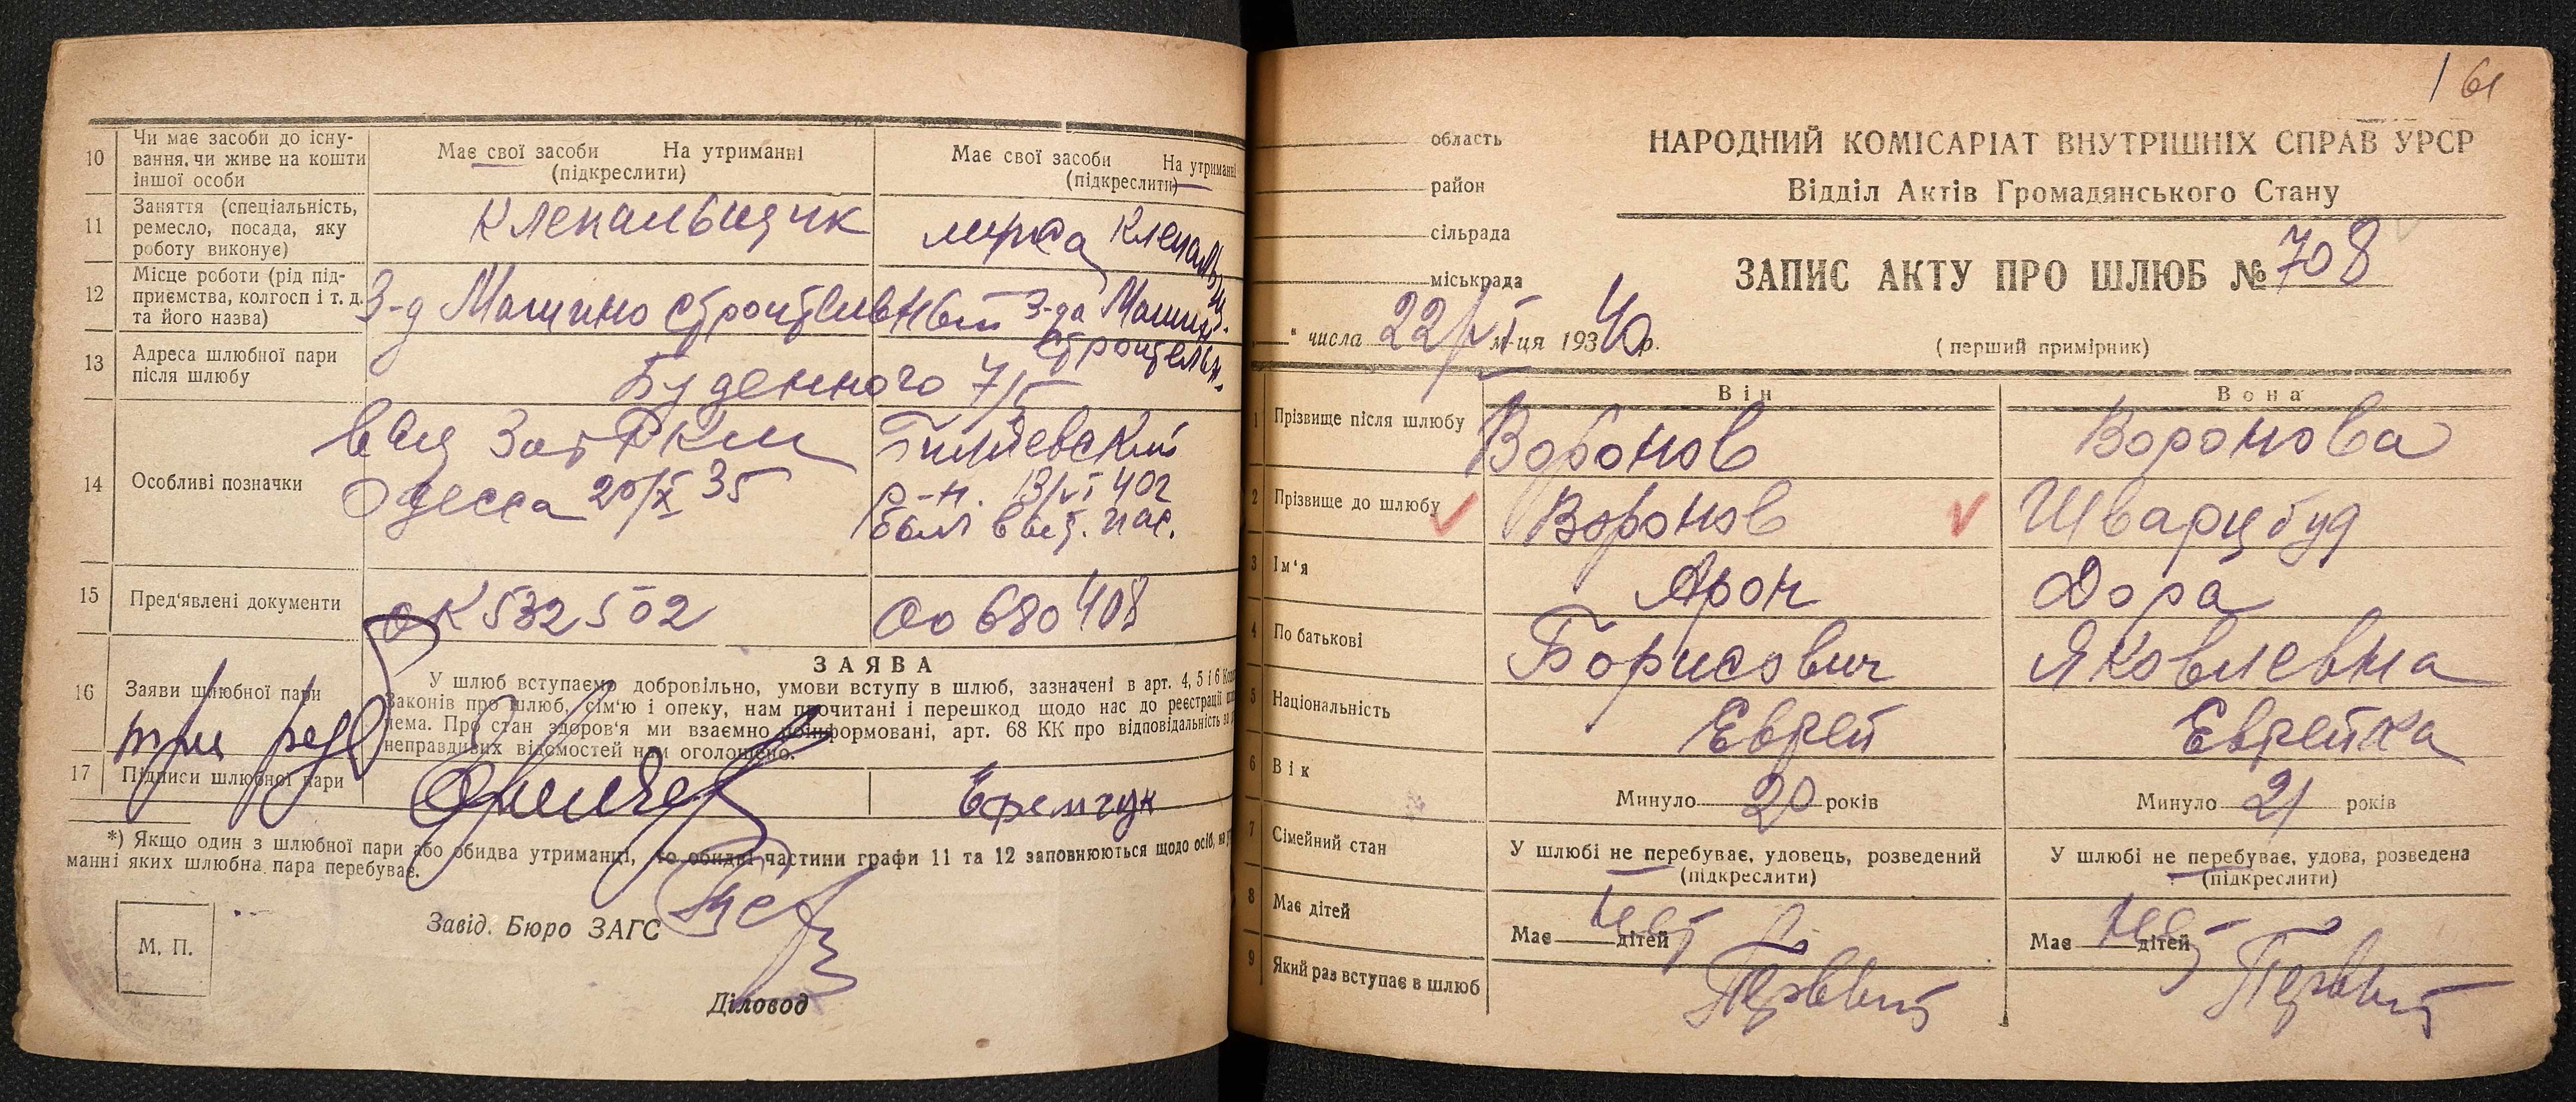 10 Чи має засоби до існу-
вання, чи живе на кошти
іншої особи
Має свої засоби На утриманні
(підкреслити)
Має свої засоби На утриманні
(підкреслити)
11 Заняття (спеціальність,
ремесло, посада, яку
роботу виконує)
Клепальщик
12 Місце роботи (рід під-
приємства, колгосп і т. д.
та його назва)
З-д Машино строител
З-да Машино
строительн.
13 Адреса шлюбної пари
після шлюбу
Буденного 7/5
14 Особливі позначки
Одесса 20/X 35
р-н. 13/VI 40г
15 Пред'явлені документи
ОК 532502
Оо 680408
16 Заяви шлюбної пари
три руб
ЗАЯВА
У шлюб вступаємо добровільно, умови вступу в шлюб, зазначені в арт. 4, 5 і 6
Законів про шлюб, сім'ю і опеку, нам прочитані і перешкод щодо нас до реєстрації
нема. Про стан здоров'я ми взаємно поінформовані, арт. 68 КК про відповідальність за
неправдивих відомостей нам оголошено.
17 Підписи шлюбної пари
*) Якщо один з шлюбної пари або обидва утриманці, то обидві частини графи 11 та 12 заповнюються щодо осіб, на
манні яких шлюбна пара перебуває.
М. П.
Завід. Бюро ЗАГС
Діловод
61
область
район
сільрада
міськрада
НАРОДНИЙ КОМІСАРІАТ ВНУТРІШНІХ СПРАВ УРСР
Відділ Актів Громадянського Стану
ЗАПИС АКТУ ПРО ШЛЮБ № 708
" числа 22/VI м-ця 1934 40 р.
(перший примірник)
Він Вона
1 Прізвище після шлюбу Воронов Воронова
2 Прізвище до шлюбу Воронов Шварцбуд
3 Ім'я Арон Дора
4 По батькові Борисович Яковлевна
5 Національність Еврей Еврейка
6 Вік Минуло 20 років Минуло 21 років
7 Сімейний стан
У шлюбі не перебуває, удовець, розведений
(підкреслити)
У шлюбі не перебуває, удова, розведена
(підкреслити)
8 Має дітей Має нет дітей Має нет дітей
9 Який раз вступає в шлюб Первый Первый